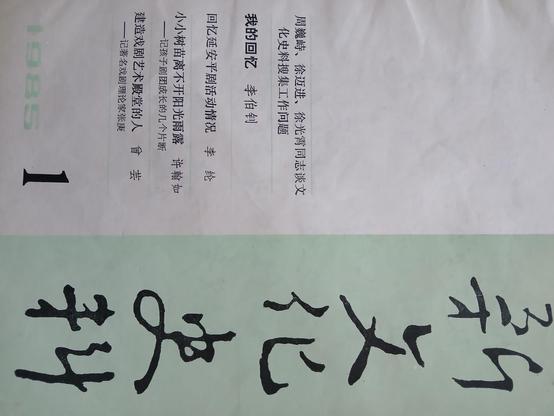 新文化史料
周巍峙、徐迈进、徐光霄同志谈文
化史料搜集工作问题
我的回忆 李伯钊
回忆延安平剧活动情况 李纶
小小树苗离不开阳光雨露 许翰如
——记孩子剧团成长的几个片断
建造戏剧艺术殿堂的人 曾芸
——记著名戏剧理论家张庚
1985
1